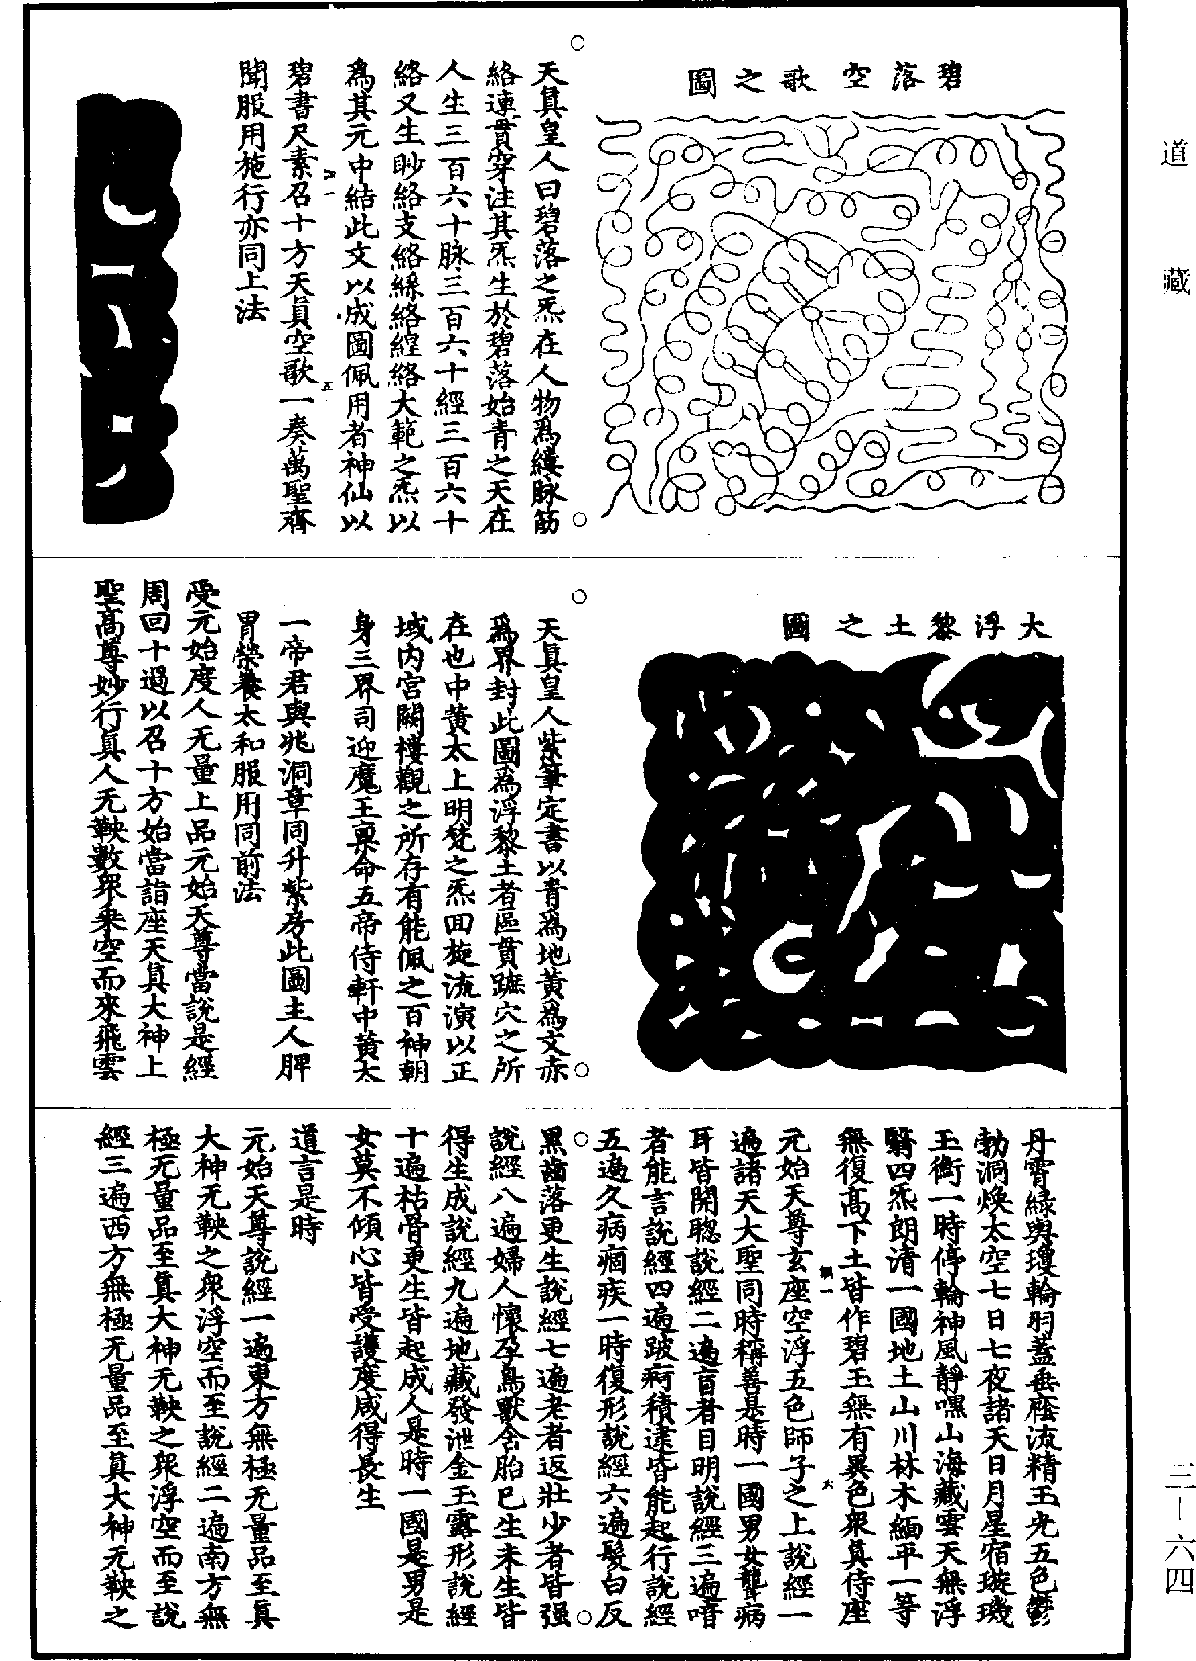 道藏
三—六四
碧落空歌之圖
天真皇人曰碧落之炁在人物爲纓脉筋
絡連貫穿注其炁生於碧落始青之天在
人生三百六十脉三百六十經三百六十
絡又生眇絡支絡絲絡縆絡大範之炁以
爲其元中結此文以成圖佩用者神仙以
碧書尺素召十方天真空歌一奏萬聖齊
聞服用施行亦同上法
大浮黎土之圖
天真皇人紫筆定書以青爲地黄爲文赤
爲界封此圖爲浮黎土者區貫蹠穴之所
在也中黄太上明梵之炁回旋流演以正
域内宫闕樓觀之所存有能佩之百神朝
身三界司迎魔王禀命五帝侍軒中黄太
一帝君與兆洞章同升紫房此圖主人脾
胃榮養太和服用同前法
受元始度人无量上品元始天尊當說是經
周回十過以召十方始當詣座天真大神上
聖高尊妙行真人无鞅數衆乘空而來飛雲
丹霄緑輿瓊輪羽蓋垂蔭流精玉光五色鬱
勃洞焕太空七日七夜諸天日月星宿璇璣
玉衡一時停輪神風静嘿山海藏雲天無浮
翳四炁朗清一國地土山川林木緬平一等
無復高下土皆作碧玉無有異色衆真侍座
元始天尊玄座空浮五色師子之上說經一
遍諸天大聖同時稱善是時一國男女聾病
耳皆開聦說經二遍盲者目明說經三遍喑
者能言說經四遍跛痾積逮皆能起行說經
五遍久病痼疾一時復形說經六遍髮白反
黑齒落更生說經七遍老者返壯少者皆强
說經八遍婦人懷孕鳥獸含胎已生未生皆
得生成說經九遍地藏發泄金玉露形說經
十遍枯骨更生皆起成人是時一國是男是
女莫不傾心皆受護度咸得長生
道言是時
元始天尊說經一遍東方無極无量品至真
大神无鞅之衆浮空而至說經二遍南方無
極无量品至真大神无鞅之衆浮空而至說
經三遍西方無極无量品至真大神无鞅之